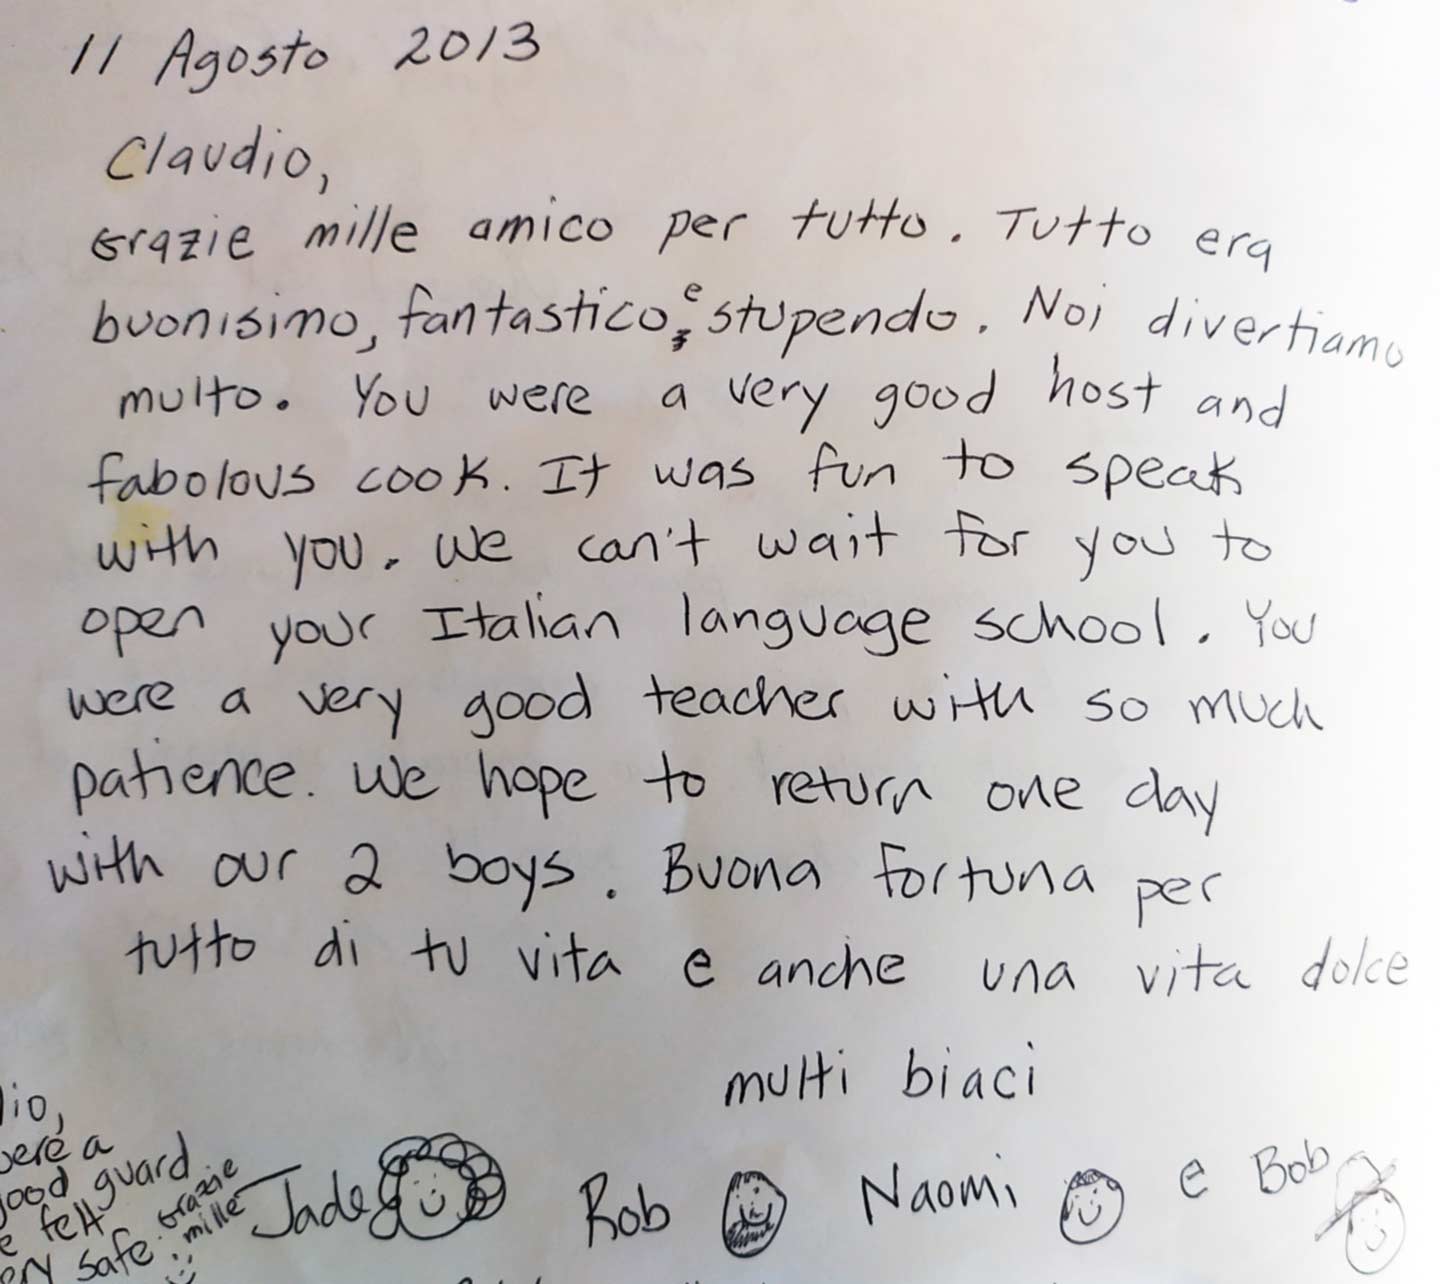 11 Agosto 2013
Claudio,
Grazie mille amico per tutto. Tutto era
buonisimo, fantastico, e stupendo. Noi divertiamo
multo. You were a very good host and
fabolous cook. It was fun to speak
with you. We can't wait for you to
open your Italian language school. You
were a very good teacher with so much
patience. We hope to return one day
with our 2 boys. Buona fortuna per
tutto di tu vita e anche una vita dolce
multi biaci
Jade Rob Naomi e Bob
dio,
were a
good guard
felt
very safe. Grazie
mille